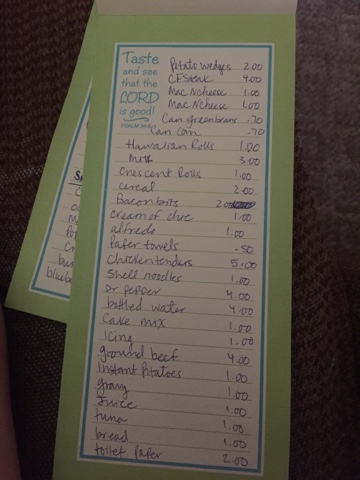 Taste
and see
that the
LORD
is good!
PSALM 34:8
Potato wedges 2.00
CFSteak 4.00
Mac Ncheese 1.00
Mac Ncheese 1.00
Can greenbeans .70
Can corn .70
Hawaiian Rolls 1.00
Milk 3.00
Crescent Rolls 1.00
cereal 2.00
Baconbits 2.00
cream of chic 1.00
alfredo 1.00
Paper towels .50
Chickentenders 5.00
Shell noodles 1.00
Dr pepper 4.00
bottled water 4.00
Cake mix 1.00
Icing 1.00
ground beef 4.00
Instant Potatoes 1.00
gravy 1.00
Juice 1.00
tuna 1.00
bread 1.00
toilet paper 2.00